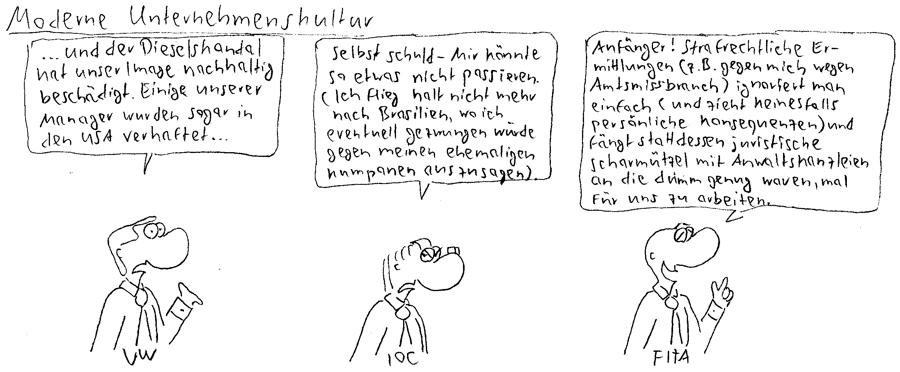 Moderne Unternehmenskultur
...und der Dieselskandal
hat unser Image nachhaltig
beschädigt. Einige unserer
Manager wurden sogar in
den USA verhaftet...
Selbst schuld - Mir könnte
so etwas nicht passieren.
(Ich flieg halt nicht mehr
nach Brasilien, wo ich
eventuell gezwungen würde
gegen meinen ehemaligen
Kumpanen auszusagen).
Anfänger! Strafrechtliche Er-
mittlungen (z.B. gegen mich wegen
Amtsmissbrauch) ignoriert man
einfach (und zieht keinesfalls
persönliche Konsequenzen) und
fängt stattdessen juristische
Scharmützel mit Anwaltskanzleien
an die dumm genug waren, mal
für uns zu arbeiten.
VW
IOC
FIFA